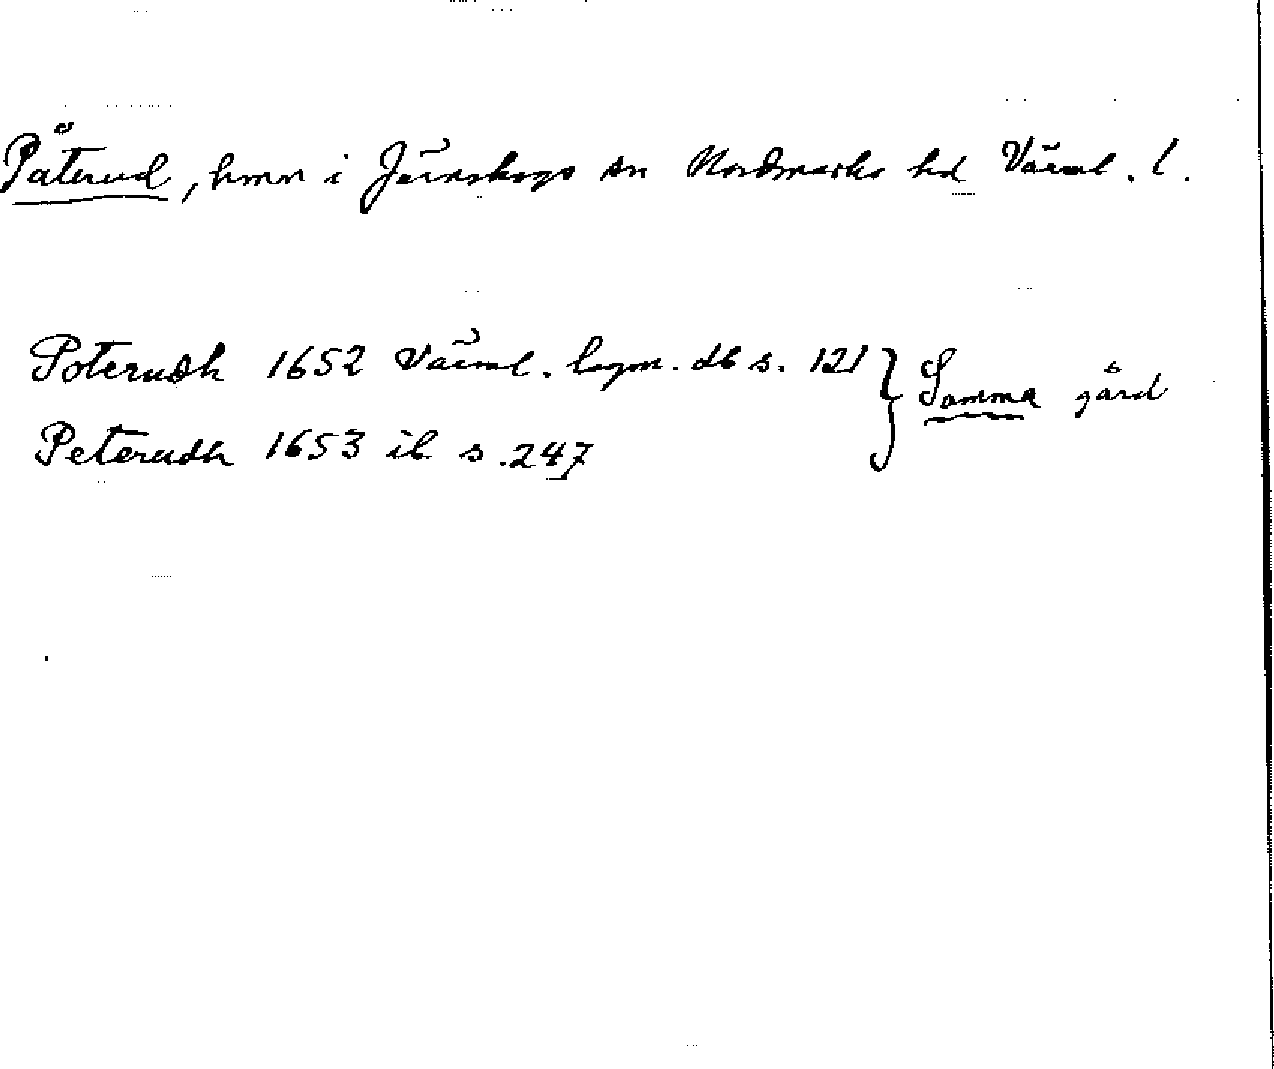 Påterud, hmn i Järnskogs sn Nordmarks hd Värml. l.
Poterudh 1652 Värml. lagm. db s. 121 } Samma gård
Peterudh 1653 ib s. 247